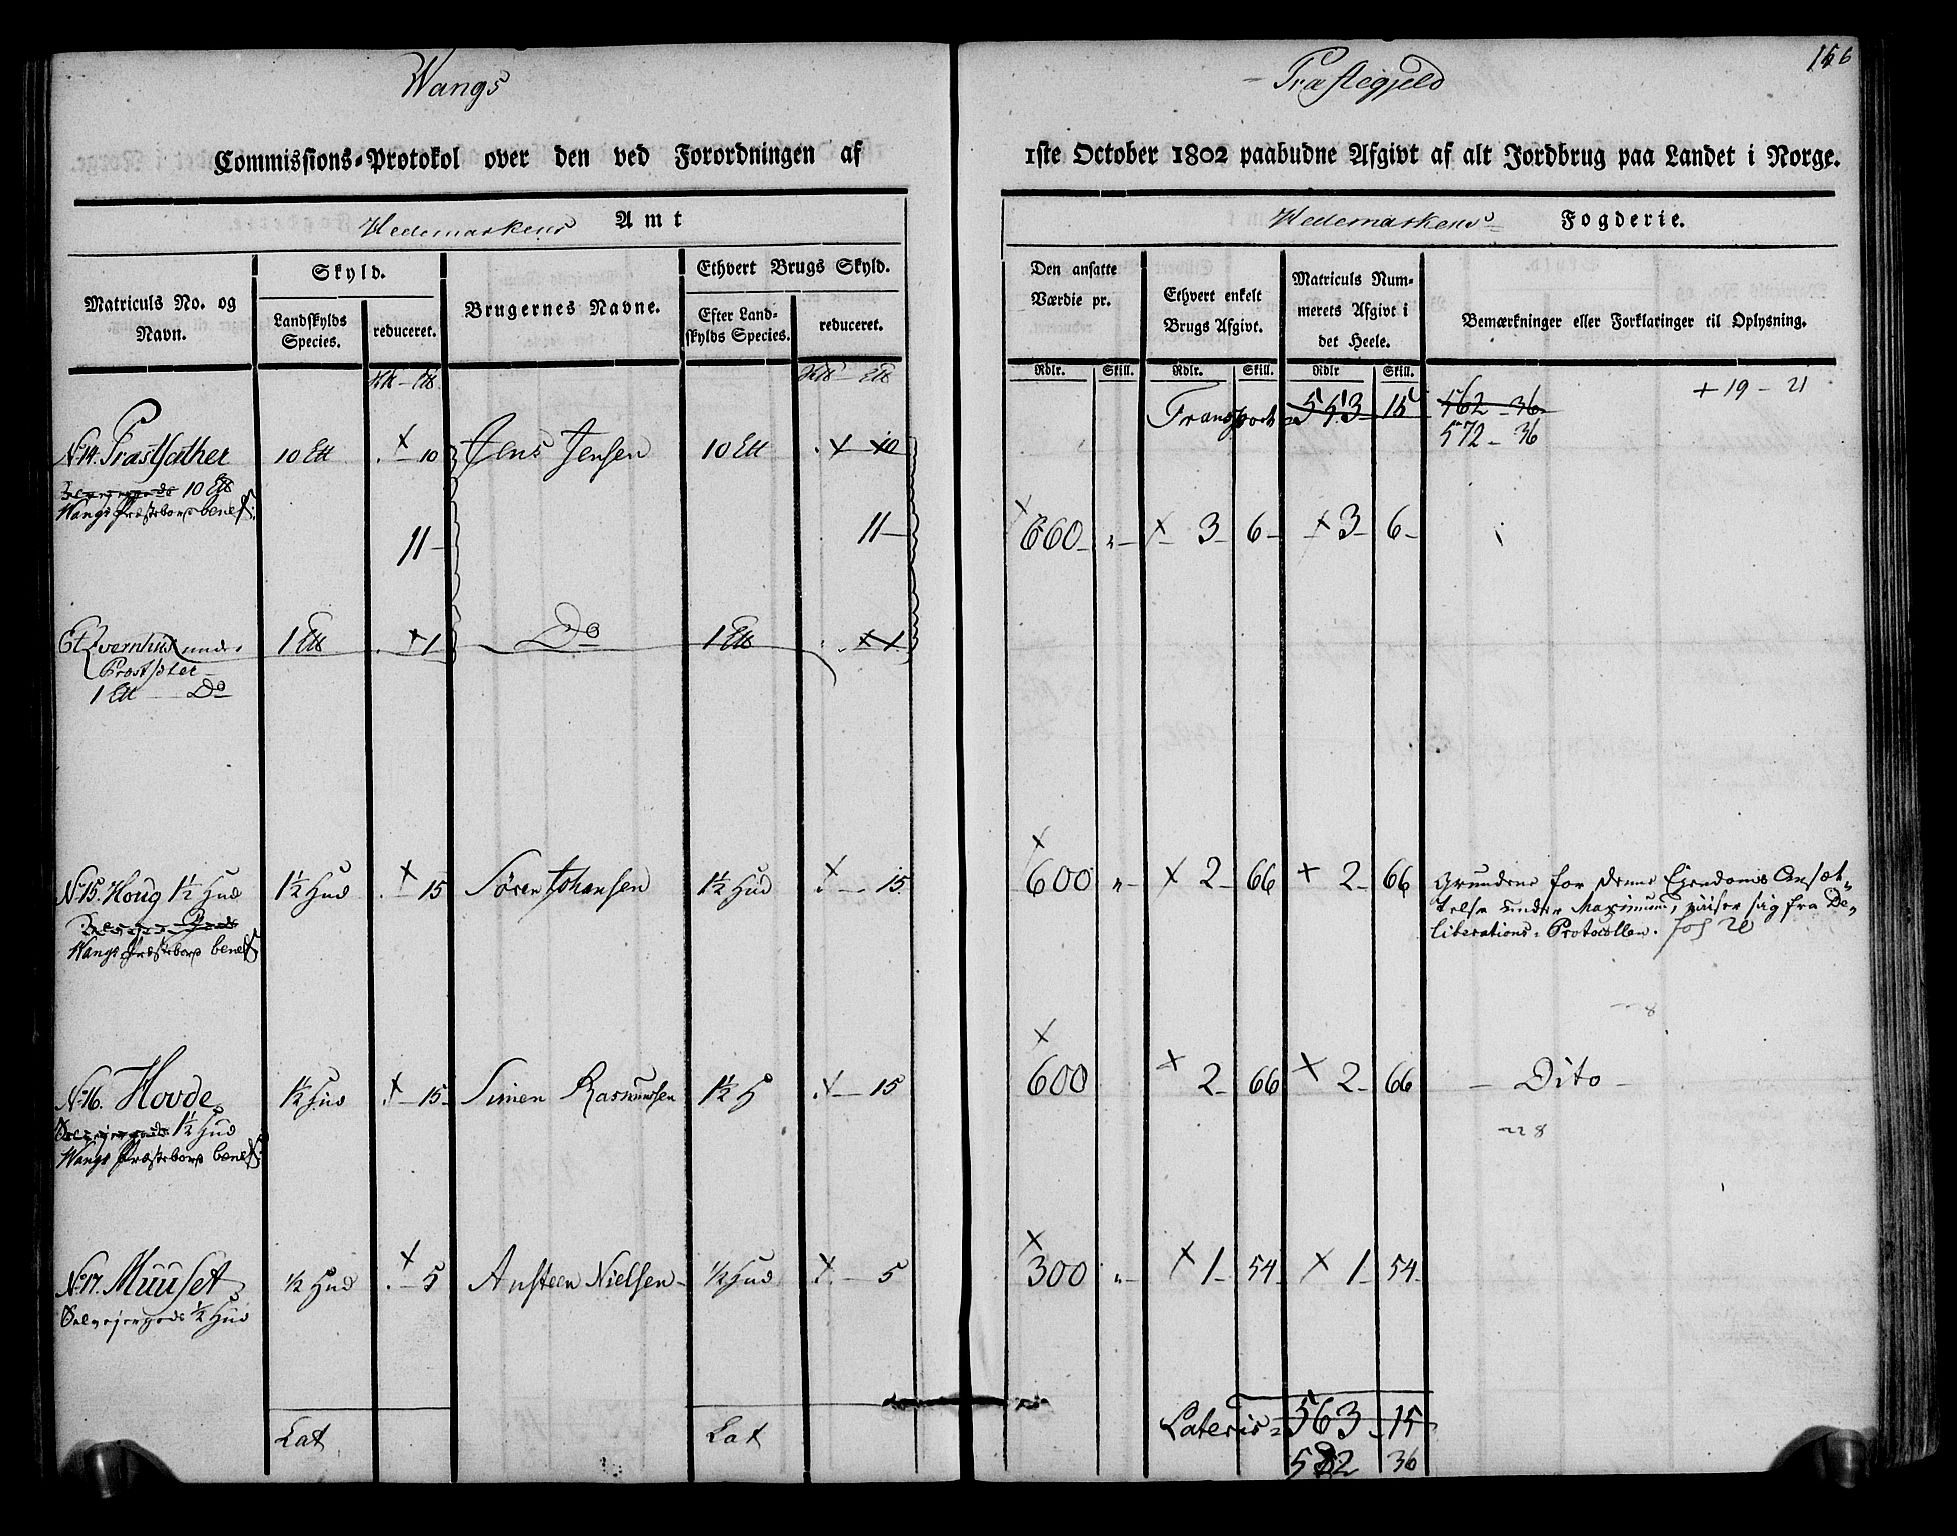 Wangs
Præstegjeld
156
Commissions-Protokol over den ved Forordningen af
1ste October 1802 paabudne Afgivt af alt Jordbrug paa Landet i Norge.
Hedemarkens Amt
Hedemarkens Fogderie.
Matriculs No. og Navn.
Skyld.
Landskylds Species.
reduceret.
Brugernes Navne.
Ethvert Brugs Skyld.
Efter Landskylds Species.
reduceret.
Den ansatte Værdie pr.
Ethvert enkelt Brugs Afgivt.
Matriculs Nummerets Afgivt i det Heele.
Bemærkninger eller Forklaringer til Oplysning.
Rdlr. Skill. Rdlr. Skill. Rdlr Skill.
Transport 553 15 562 - 36
+ 19 - 21
572 - 36
No 14. Præstsæther 10 Ltt 10 Jens Jensen 10 Ltt 10
10 Ltt
Wangs Præstebors benef:
11 - 11 - 660 " 3 6 3 6
Et Qvernhus under 1 Ltt 1 Do 1 Ltt 1
Prostsæter
1 Ltt Do
No 15. Houg 1½ Hud 1½ Hud 15 Sören Johansen 1½ Hud 15 600 " 2 66 2 66 Grundene for denne Eiendoms Ansæt-
telse under Maximum, viiser sig fra De-
liberations-Protocollen. fol 20
Wangs Præstebors benef
No 16. Hovde 1½ Hud 15 Simen Rasmussen 1½ H 15 600 2 66 2 66 Dito
1½ Hud
Wangs Præstebors benef:
No 17. Muuset ½ Hud 5 Ansteen Nielsen ½ Hud 5 300 " 1 54 1 54
Selvejergods ½ Hud
Lat Lat Lateris 563 15
582 36